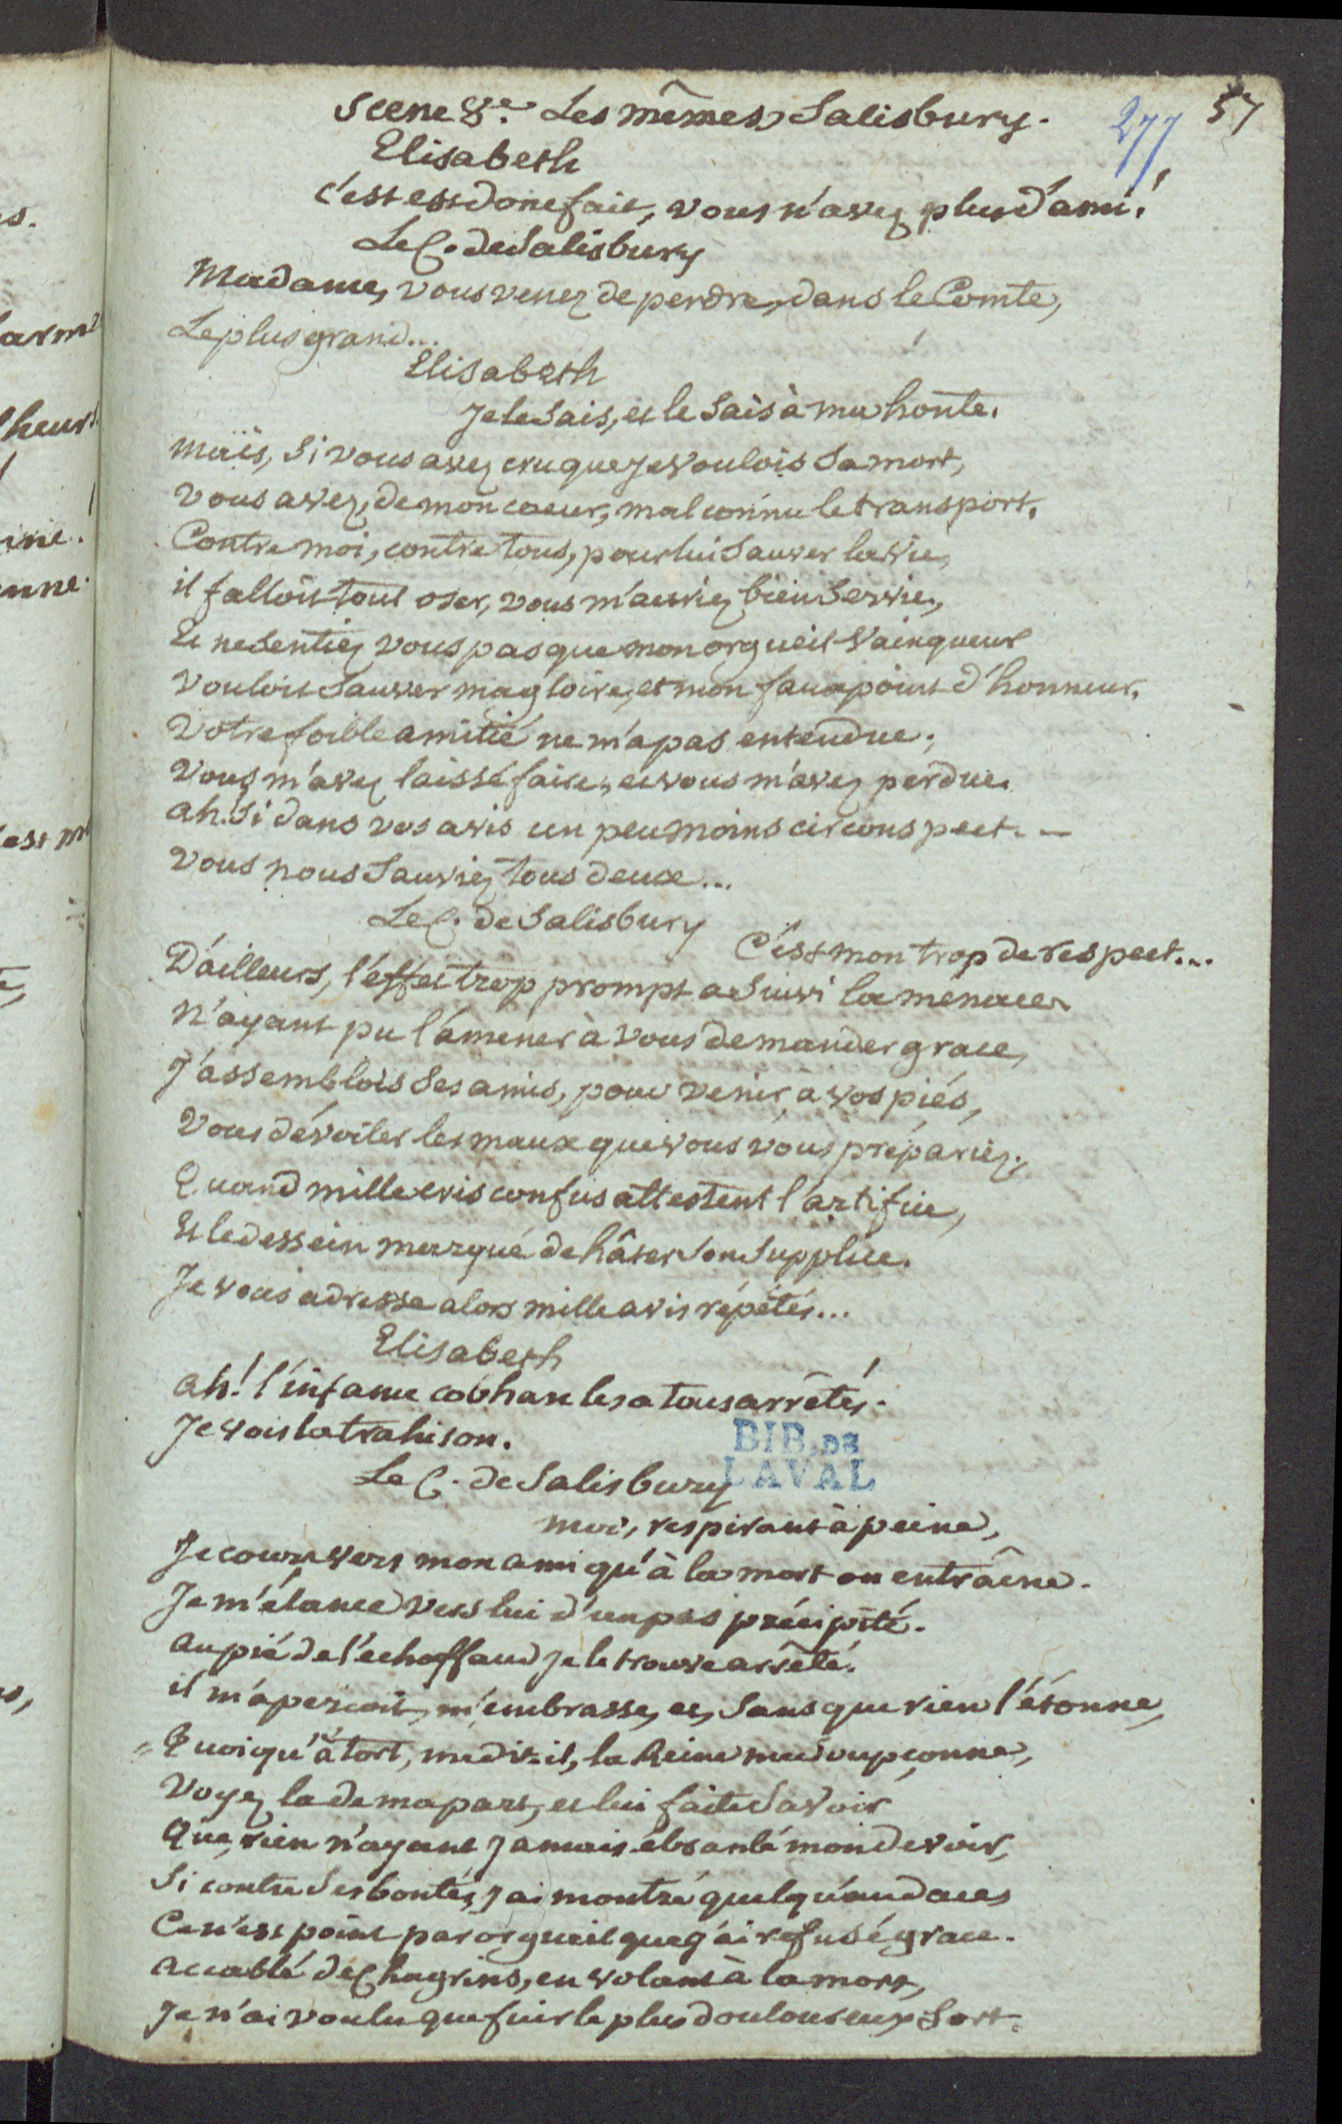 Scene 8e. Les mêmes, Salisbury.
277
57
Elisabeth
c'est est donc fait, vous n'avez plus d'ami!
Le C. de Salisbury
Madame, vous venez de perdre, dans le Comte,
Le plus grand...
Elisabeth
Je le Sais, et le Sais à ma honte.
mais, Si vous avez cru que Je voulois Sa mort,
vous avez, de mon coeur, mal connu le transport.
Contre moi, contre tous, pour lui Sauver la vie,
il falloit tout oser, vous m'auriez bien Servie,
Et ne Sentiez vous pas que mon orgueil Vainqueur
vouloit Sauver ma gloire, et mon faux point d'honneur.
votre foible amitié ne m'a pas entendue;
vous m'avez laissé faire, et vous m'avez perdue.
ah! Si dans vos avis un peu moins circonspect. -
vous nous Sauviez tous deux...
Le C. de Salisbury
C'est mon trop de respect...
D'ailleurs, l'effet trop prompt a Suivi la menace.
N'ayant pu l'amener à vous demander grace,
J'assemblois Ses amis, pour venir, à vos piés,
vous dévoiler les maux que vous vous prépariez;
Quand mille cris confus attestent l'artifice,
Et le dessein marqué de hâter Son Supplice.
Je vous adresse alors mille avis répétés...
Elisabeth
ah! l'infame cobhan les a tous arrêtés!
Je vois la trahison.
BIB. DE
LAVAL
Le C. de Salisbury
moi, respirant à peine,
Je cours vers mon ami qu'à la mort on entraîne.
Je m'élance vers lui d'un pas précipité.
au pié de l'échaffaud Je le trouve arrêté.
il m'aperçoit, m'embrasse, et, Sans que rien l'étonne,
" Quoiqu'à tort, me dit-il, la Reine me Soupçonne,
Voyez la de ma part, et lui faite Savoir
Que, rien n'ayant Jamais ébranlé mon devoir,
Si contre Ses bontés J'ai montré quelqu'audace
Ce n'est point par orgueil que j'ai refusé grace.
accablé de Chagrins, en volant à la mort,
Je n'ai voulu que fuir le plus douloureux Sort.